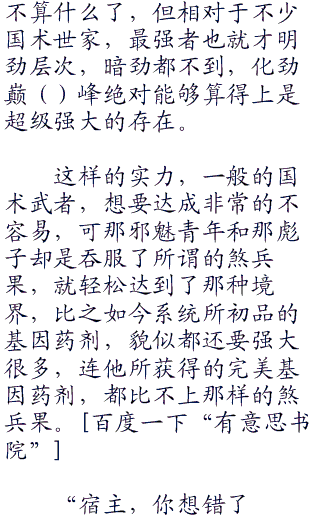 不算什么了，但相对于不少
国术世家，最强者也就才明
劲层次，暗劲都不到，化劲
巅（）峰绝对能够算得上是
超级强大的存在。
这样的实力，一般的国
术武者，想要达成非常的不
容易，可那邪魅青年和那彪
子却是吞服了所谓的煞兵
果，就轻松达到了那种境
界，比之如今系统所初品的
基因药剂，貌似都还要强大
很多，连他所获得的完美基
因药剂，都比不上那样的煞
兵果。[百度一下“有意思书
院”]
“宿主，你想错了